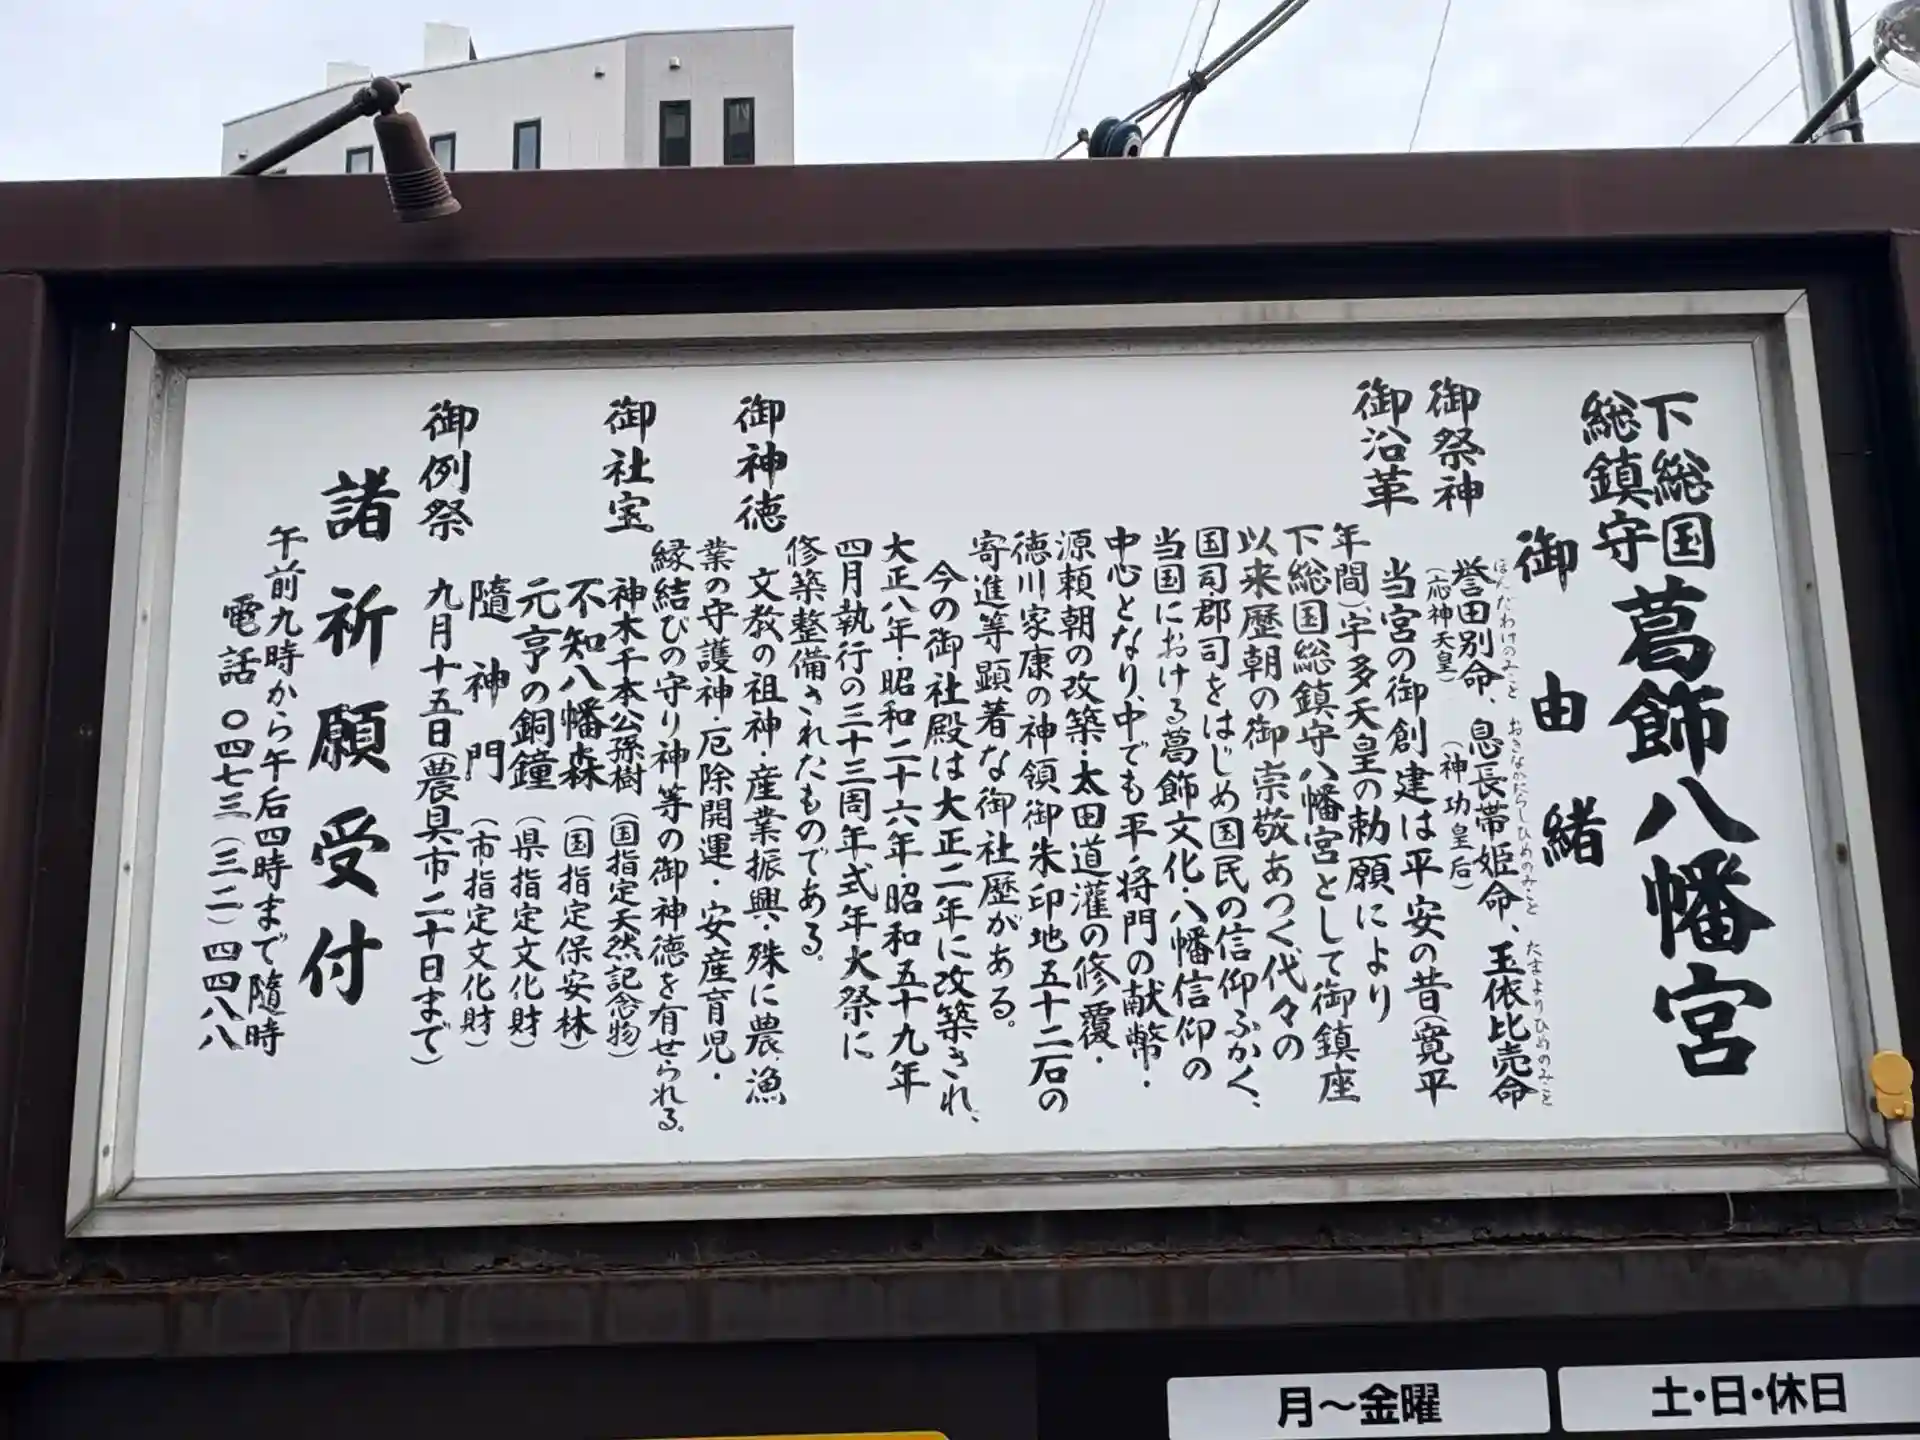 下総国
総鎮守
葛飾八幡宮
御由緒
御祭神
ほんだわけのみこと おきながたらしひめのみこと たまよりひめのみこと
誉田別命、息長帯姫命、玉依比売命
(応神天皇) (神功皇后)
御沿革
当宮の御創建は平安の昔(寛平
年間)、宇多天皇の勅願により
下総国総鎮守八幡宮として御鎮座
以来歴朝の御崇敬あつく、代々の
国司・郡司をはじめ国民の信仰ふかく、
当国における葛飾文化・八幡信仰の
中心となり、中でも平ノ将門の献幣・
源頼朝の改築・太田道灌の修覆・
徳川家康の神領御朱印地五十二石の
寄進等顕著な御社歴がある。
今の御社殿は大正二年に改築され、
大正八年・昭和二十六年・昭和五十九年
四月執行の三十三周年式年大祭に
修築整備されたものである。
御神徳
文教の祖神・産業振興・殊に農・漁
業の守護神・厄除開運・安産育児・
縁結びの守り神等の御神徳を有せられる。
御社宝
神木千本公孫樹(国指定天然記念物)
不知八幡森(国指定保安林)
元亨の銅鐘(県指定文化財)
隨神門(市指定文化財)
御例祭
九月十五日(農具市二十日まで)
諸祈願受付
午前九時から午后四時まで随時
電話〇四七三(三二)四四八八
月～金曜
土・日・休日